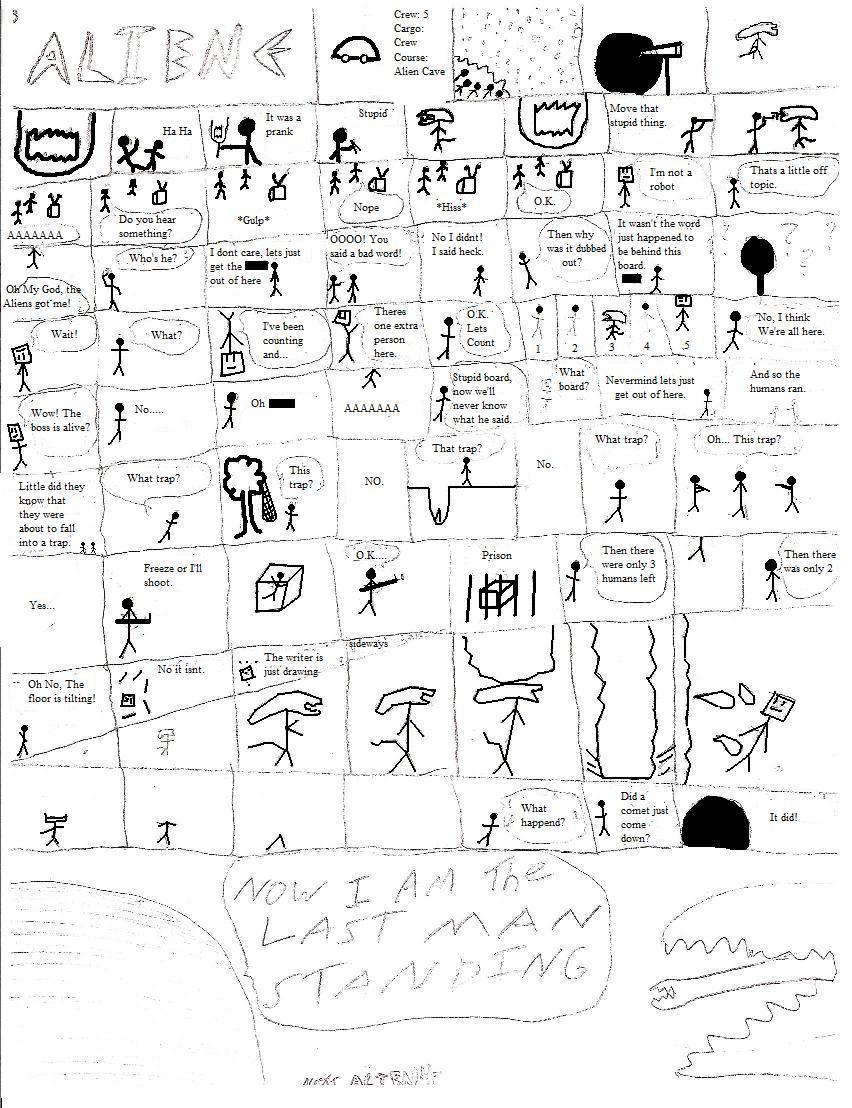 3
ALIEN
Crew: 5
Cargo:
Crew
Course:
Alien Cave
Ha Ha
It was a
prank
Stupid
Move that
stupid thing.
AAAAAAA
Do you hear
something?
*Gulp*
Nope
*Hiss*
O.K.
I'm not a
robot
Thats a little off
topic.
Oh My God, the
Aliens got me!
Who's he?
I dont care, lets just
get the
out of here
OOOO! You
said a bad word!
No I didnt!
I said heck.
Then why
was it dubbed
out?
It wasn't the word
just happened to
be behind this
board.
? ? ? ?
Wait!
What?
I've been
counting
and...
Theres
one extra
person
here.
O.K.
Lets
Count
1 2 3 4 5
No, I think
We're all here.
Wow! The
boss is alive?
No.....
Oh
AAAAAAA
Stupid board,
now we'll
never know
what he said.
What
board?
Nevermind lets just
get out of here.
And so the
humans ran.
Little did they
know that
they were
about to fall
into a trap.
What trap?
This
trap?
NO.
That trap?
No.
What trap?
Oh... This trap?
Yes...
Freeze or I'll
shoot.
O.K....
Prison
Then there
were only 3
humans left
Then there
was only 2
Oh No, The
floor is tilting!
No it isnt.
The writer is
just drawing
sideways
What
happend?
Did a
comet just
come
down?
It did!
NOW I AM The
LAST MAN
STANDING